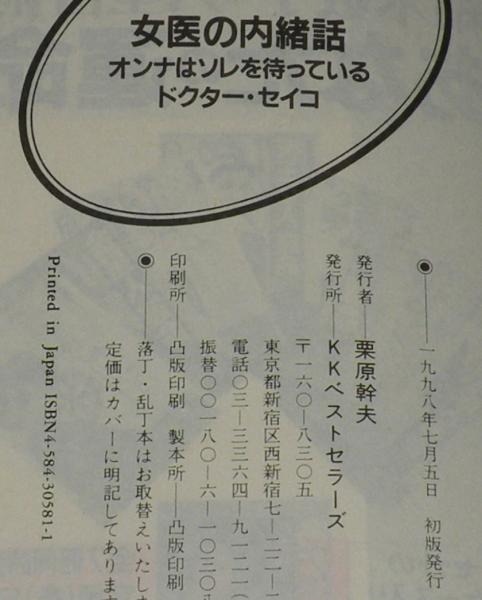 女医の内緒話
オンナはソレを待っている
ドクター・セイコ
◉――一九九八年七月五日　初版発行
発行者――栗原幹夫
発行所――KKベストセラーズ
〒一六〇―八三〇五
東京都新宿区西新宿七―二二―
電話〇三―三三六四―九一二一
振替〇〇一八〇―六―一〇三〇八
印刷所――凸版印刷　製本所――凸版印刷
◉――落丁・乱丁本はお取替えいたしま
定価はカバーに明記してあります
Printed in Japan ISBN4-584-30581-1